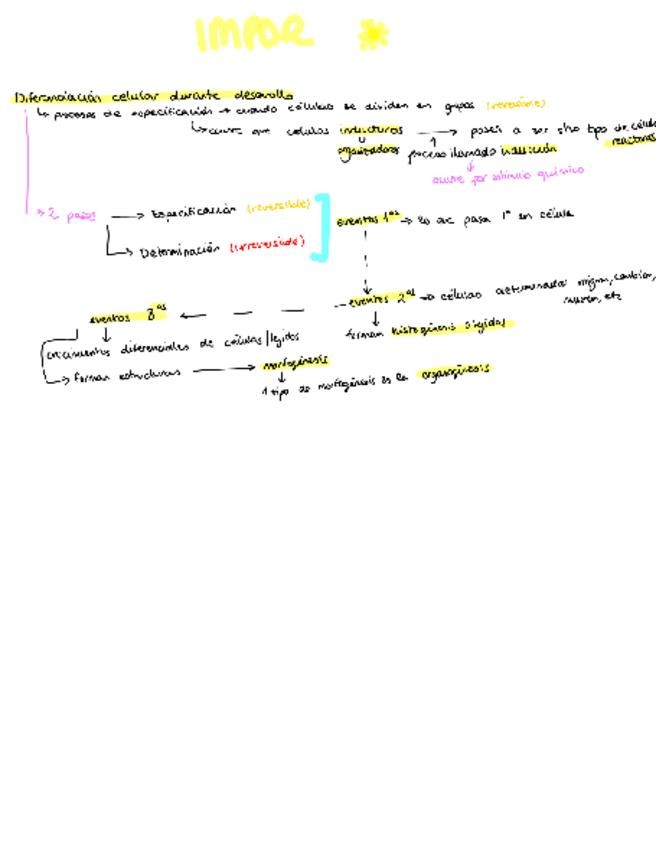 IMPOR *
Diferenciación celular durante desarrollo
↳ procesos de especificación → cuando células se dividen en grupos (reversible)
↳ ocurre que células inductoras → pasen a ser otro tipo de célula
organizadoras proceso llamado inducción reactoras
ocurre por estímulo químico
→ 2 pasos → Especificación (reversible)
eventos 1os → lo que pasa 1º en célula
→ Determinación (irreversible)
eventos 2os → células determinadas migran, cambian,
etc
eventos 3os
forman histogénesis
crecimientos diferenciales de células/tejidos
→ forman estructuras → morfogénesis
1 tipo de morfogénesis es la organogénesis